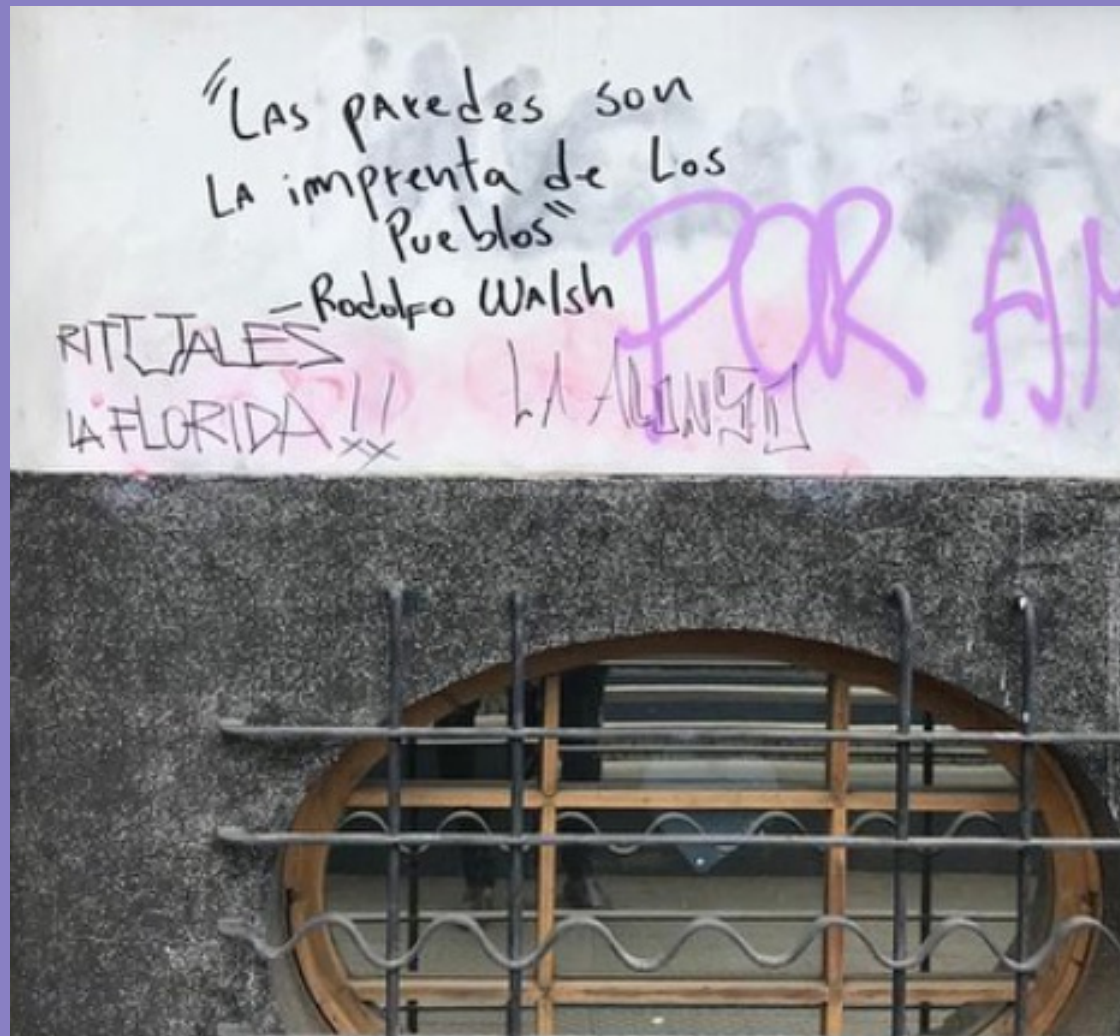 "LAS PAREDES SON
LA imprenta de Los
Pueblos"
- Rodolfo Walsh
POR AM
RITUALES
LA FLORIDA!!
LA